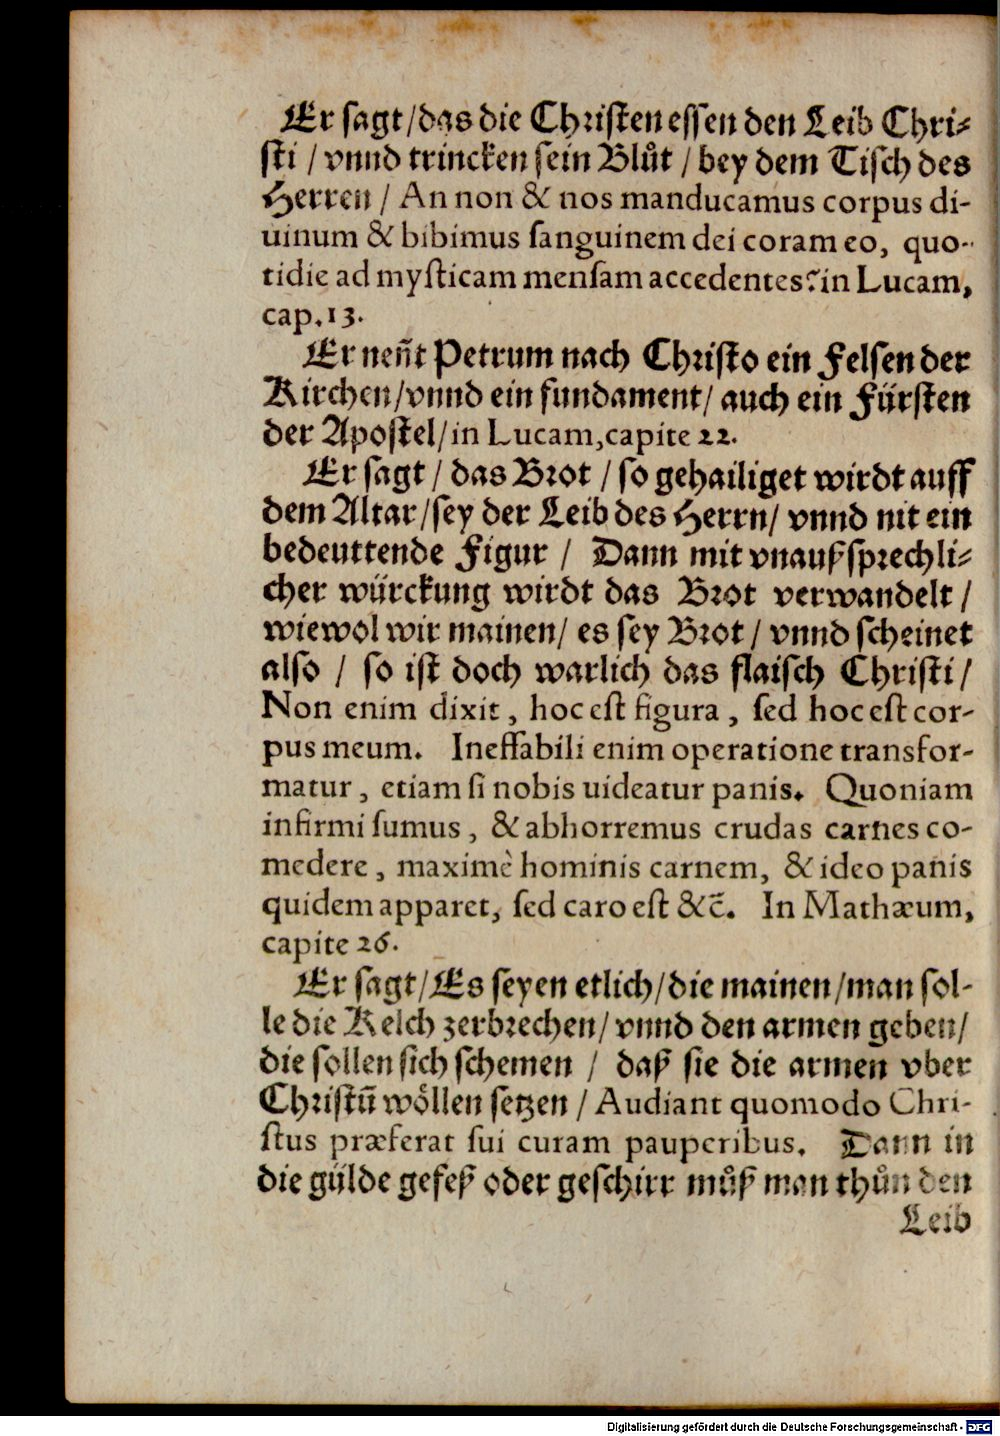 Er sagt / das die Christen essen den Leib Chri⸗
sti / vnnd trincken sein Blůt / bey dem Tisch des
Herren / An non & nos manducamus corpus di-
uinum & bibimus sanguinem dei coram eo, quo-
tidie ad mysticam mensam accedentes? in Lucam,
cap. 13.
Er neñt Petrum nach Christo ein Felsen der
Kirchen / vnnd ein fundament / auch ein Fürsten
der Apostel / in Lucam, capite 22.
Er sagt / das Brot / so gehailiget wirdt auff
dem Altar / sey der Leib des Herrn / vnnd nit ein
bedeuttende Figur / Dann mit vnaußsprechli⸗
cher würckung wirdt das Brot verwandelt /
wiewol wir mainen / es sey Brot / vnnd scheinet
also / so ist doch warlich das flaisch Christi /
Non enim dixit, hoc est figura, sed hoc est cor-
pus meum. Ineffabili enim operatione transfor-
matur, etiam si nobis uideatur panis. Quoniam
infirmi sumus, & abhorremus crudas carnes co-
medere, maximè hominis carnem, & ideo panis
quidem apparet, sed caro est &c̄. In Mathæum,
capite 26.
Er sagt / Es seyen etlich / die mainen / man sol-
le die Kelch zerbrechen / vnnd den armen geben /
die sollen sich schemen / daß sie die armen vber
Christū wöllen setzen / Audiant quomodo Chri-
stus præferat sui curam pauperibus. Dann in
die gülde gefeß oder geschirr můß man thůn den
Leib
Digitalisierung gefördert durch die Deutsche Forschungsgemeinschaft - DFG